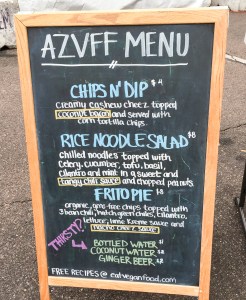 AZVFF MENU
CHIPS N' DIP $4
creamy cashew cheez topped
coconut bacon and served with
corn tortilla chips.
RICE NOODLE SALAD $8
chilled noodles topped with
celery, cucumber, tofu, basil,
cilantro and mint in a sweet and
tangy chili sauce and chopped peanuts
FRITO PIE $8
organic, gmo-free chips topped with
3 bean chili, hatch green chiles, cilantro,
lettuce, lime kreme sauce and
nacho cheez sauce
THIRSTY?
BOTTLED WATER
COCONUT WATER
GINGER BEER
FREE RECIPES @ eatveganfood.com